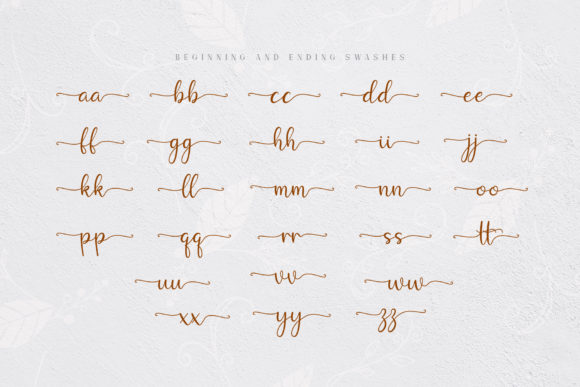 BEGINNING AND ENDING SWASHES
aa bb cc dd ee
ff gg hh ii jj
kk ll mm nn oo
pp qq rr ss tt
uu vv ww
xx yy zz